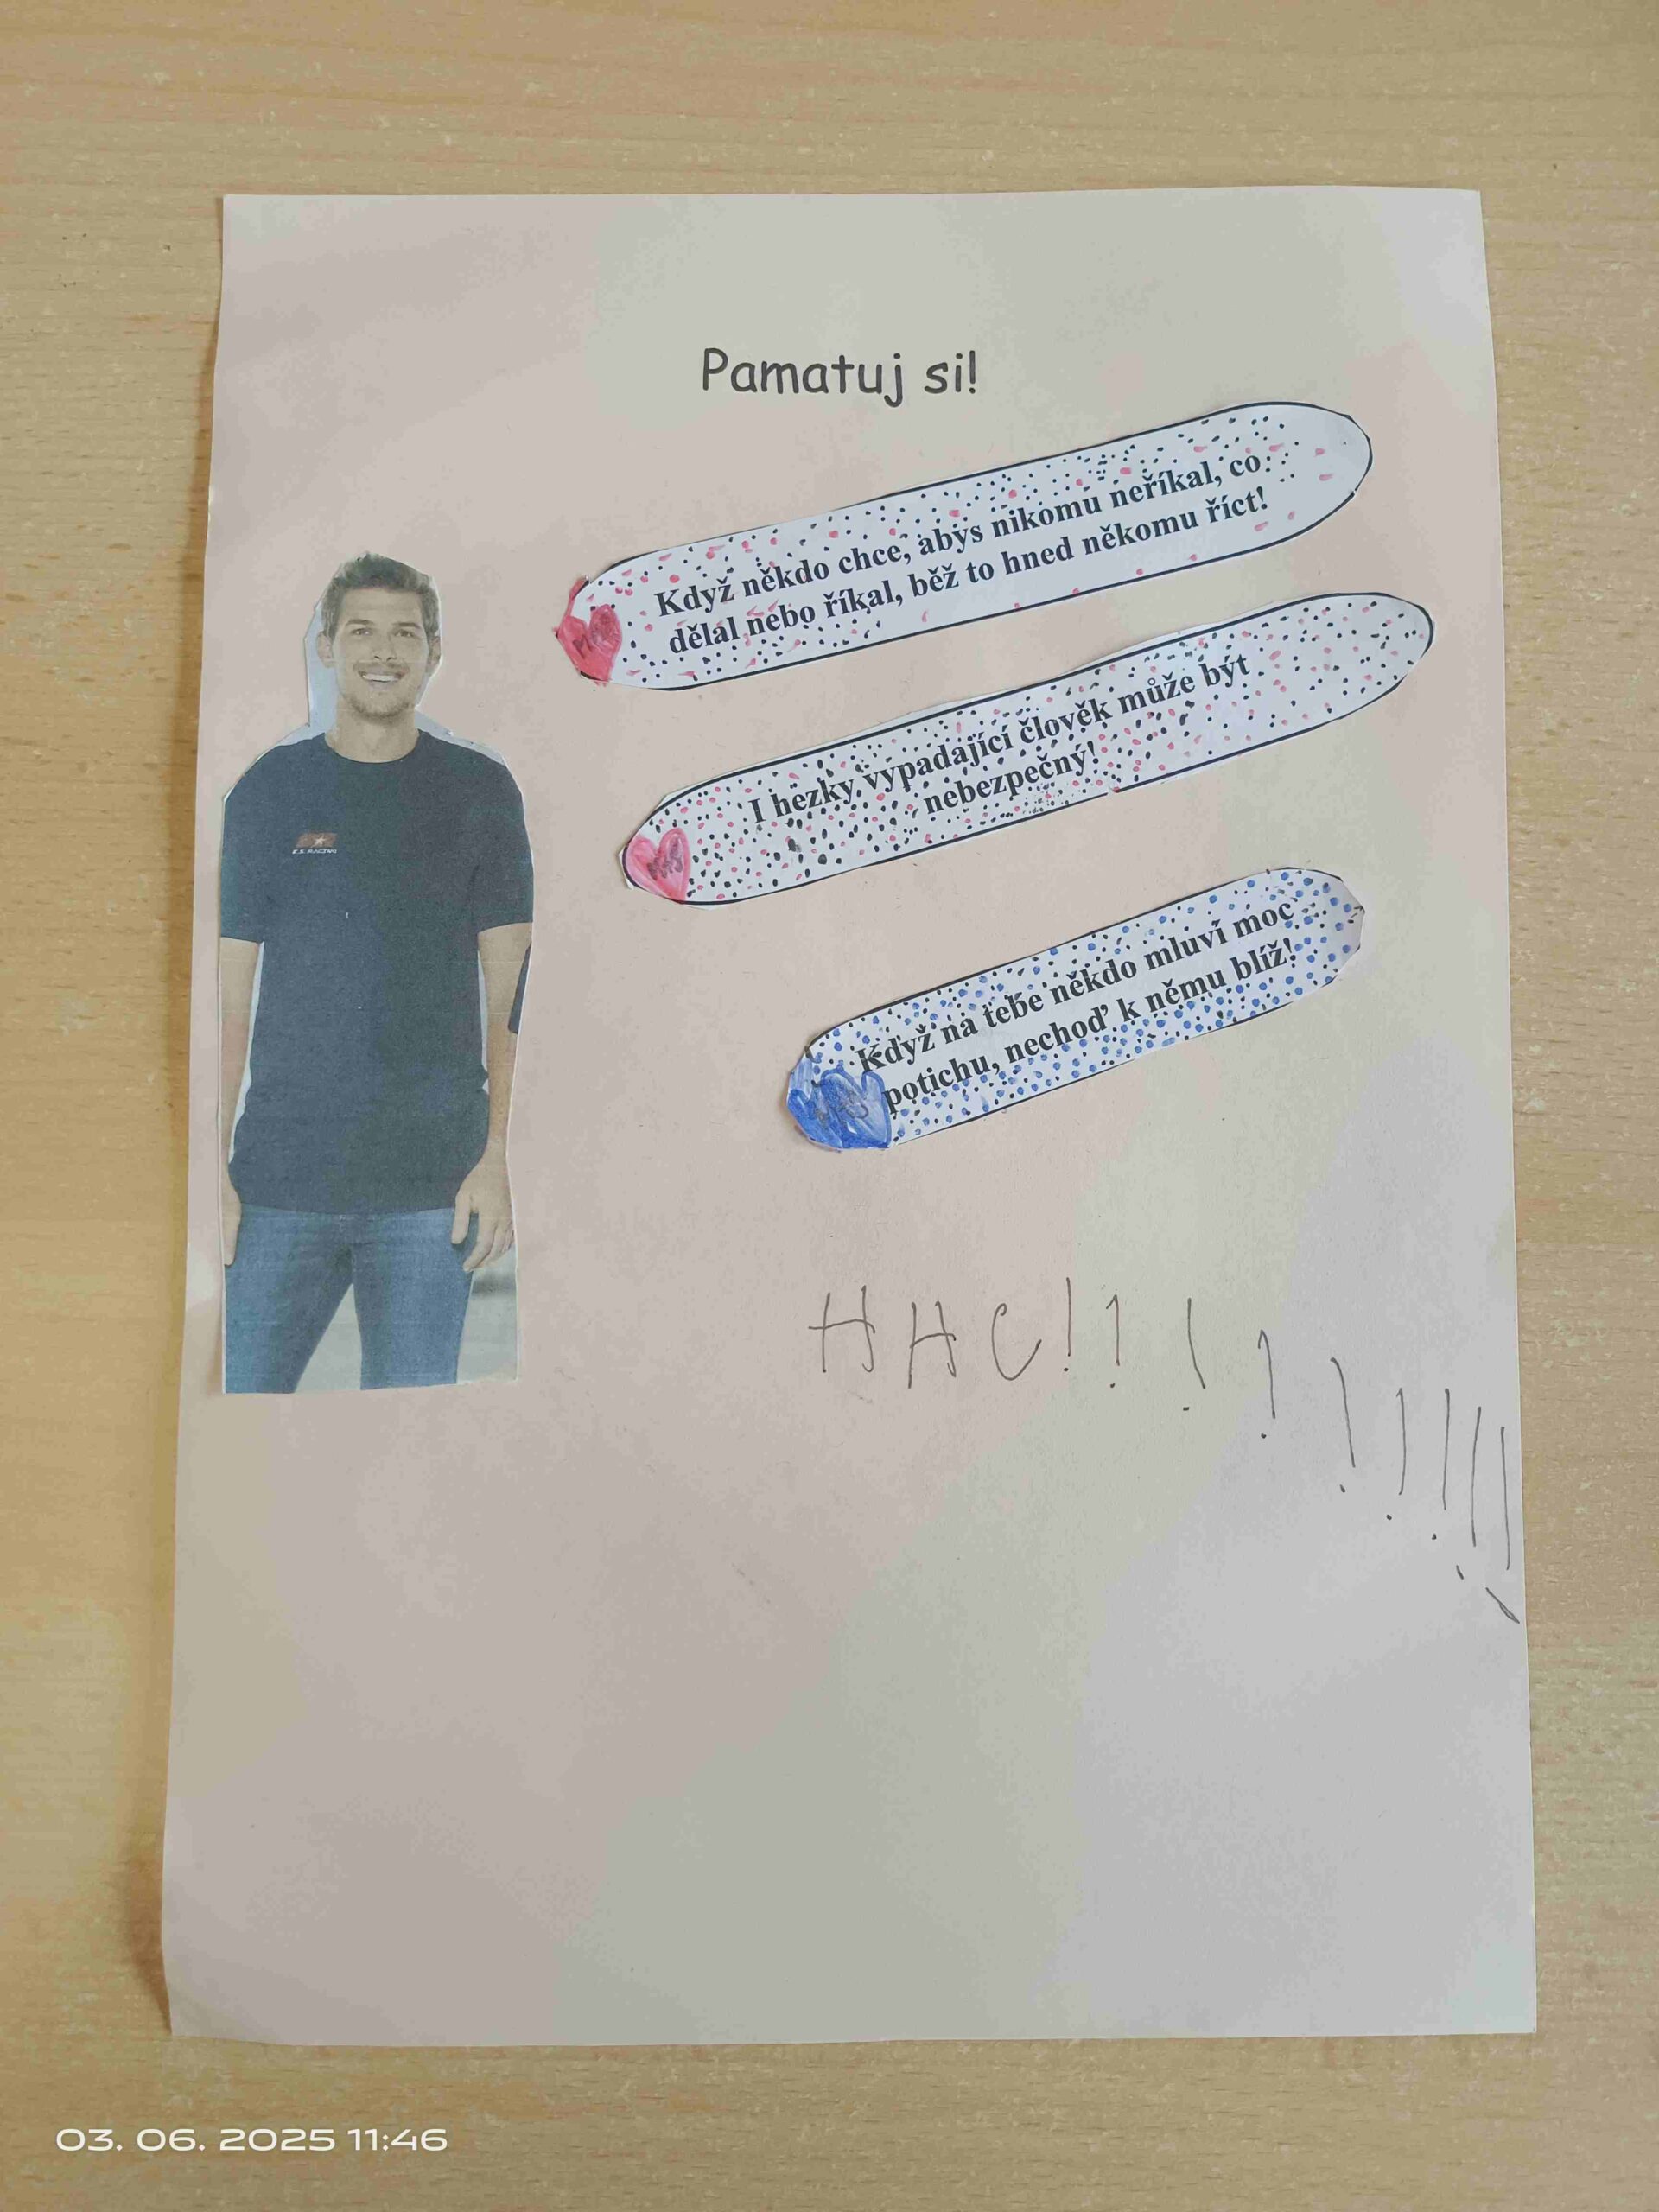 Pamatuj si!
Když někdo chce, abys nikomu neříkal, co
dělal nebo říkal, běž to hned někomu říct!
I hezky vypadající člověk může být
nebezpečný!
Když na tebe někdo mluví moc
potichu, nechoď k němu blíž!
HHC!!!!!!!!!
03. 06. 2025 11:46